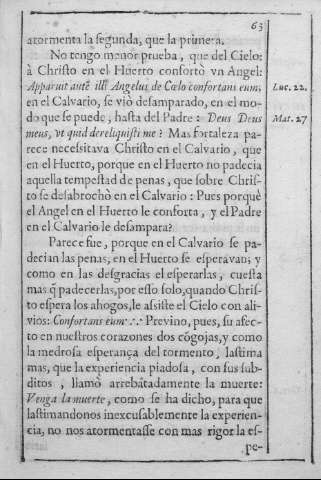 63
atormenta la segunda, que la primera.
No tengo menor prueba, que del Cielo:
à Christo en el Huerto confortò vn Angel:
Apparuit autẽ illi Angelus de Cœlo confortans eum,
Luc. 22.
en el Calvario, se viò desamparado, en el mo-
do que se puede, hasta del Padre: Deus Deus
Mat. 27
meus, vt quid dereliquisti me? Mas fortaleza pa-
rece necessitava Christo en el Calvario, que
en el Huerto, porque en el Huerto no padecia
aquella tempestad de penas, que sobre Chris-
to se desabrochò en el Calvario: Pues porquè
el Angel en el Huerto le conforta, y el Padre
en el Calvario le desampara?
Parece fue, porque en el Calvario se pa-
decian las penas, en el Huerto se esperavan; y
como en las desgracias el esperarlas, cuesta
mas q̃ padecerlas, por esso solo, quando Chris-
to espera los ahogos, le assiste el Cielo con ali-
vios: Confortans eum: Previno, pues, su afec-
to en nuestros corazones dos cõgojas, y como
la medrosa esperança del tormento, lastima
mas, que la experiencia piadosa, con sus sub-
ditos, llamò arrebatadamente la muerte:
Venga la muerte, como se ha dicho, para que
lastimandonos inexcusablemente la experien-
cia, no nos atormentasse con mas rigor la es-
pe-